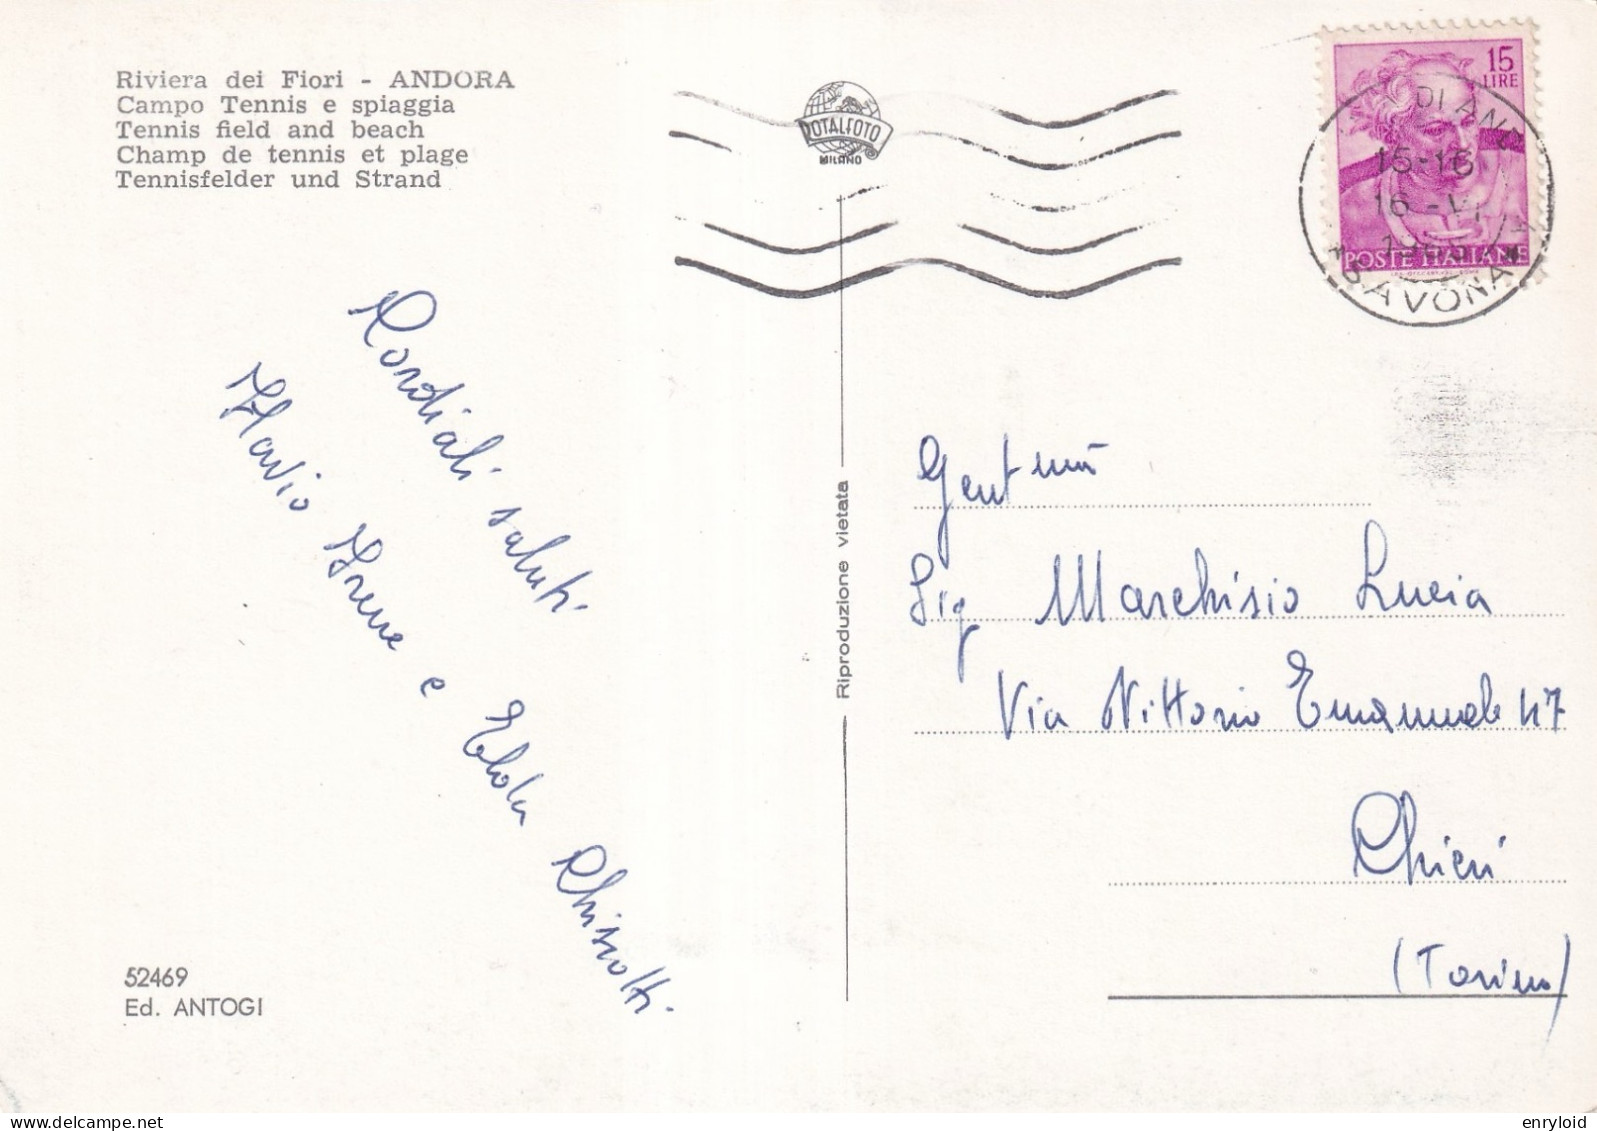 Riviera dei Fiori - ANDORA
Campo Tennis e spiaggia
Tennis field and beach
Champ de tennis et plage
Tennisfelder und Strand
ROTALFOTO
MILANO
15
LIRE
POSTE ITALIANE
DI AND
15-16
16 -VI
SAVONA
Cordiali saluti
Flavio Irene e Elda Chisiotti.
Riproduzione vietata
Gent ma
Sig Marchisio Lucia
Via Vittorio Emanuele 47
Chieri
(Torino)
52469
Ed. ANTOGI
enryloid
delcampe.net